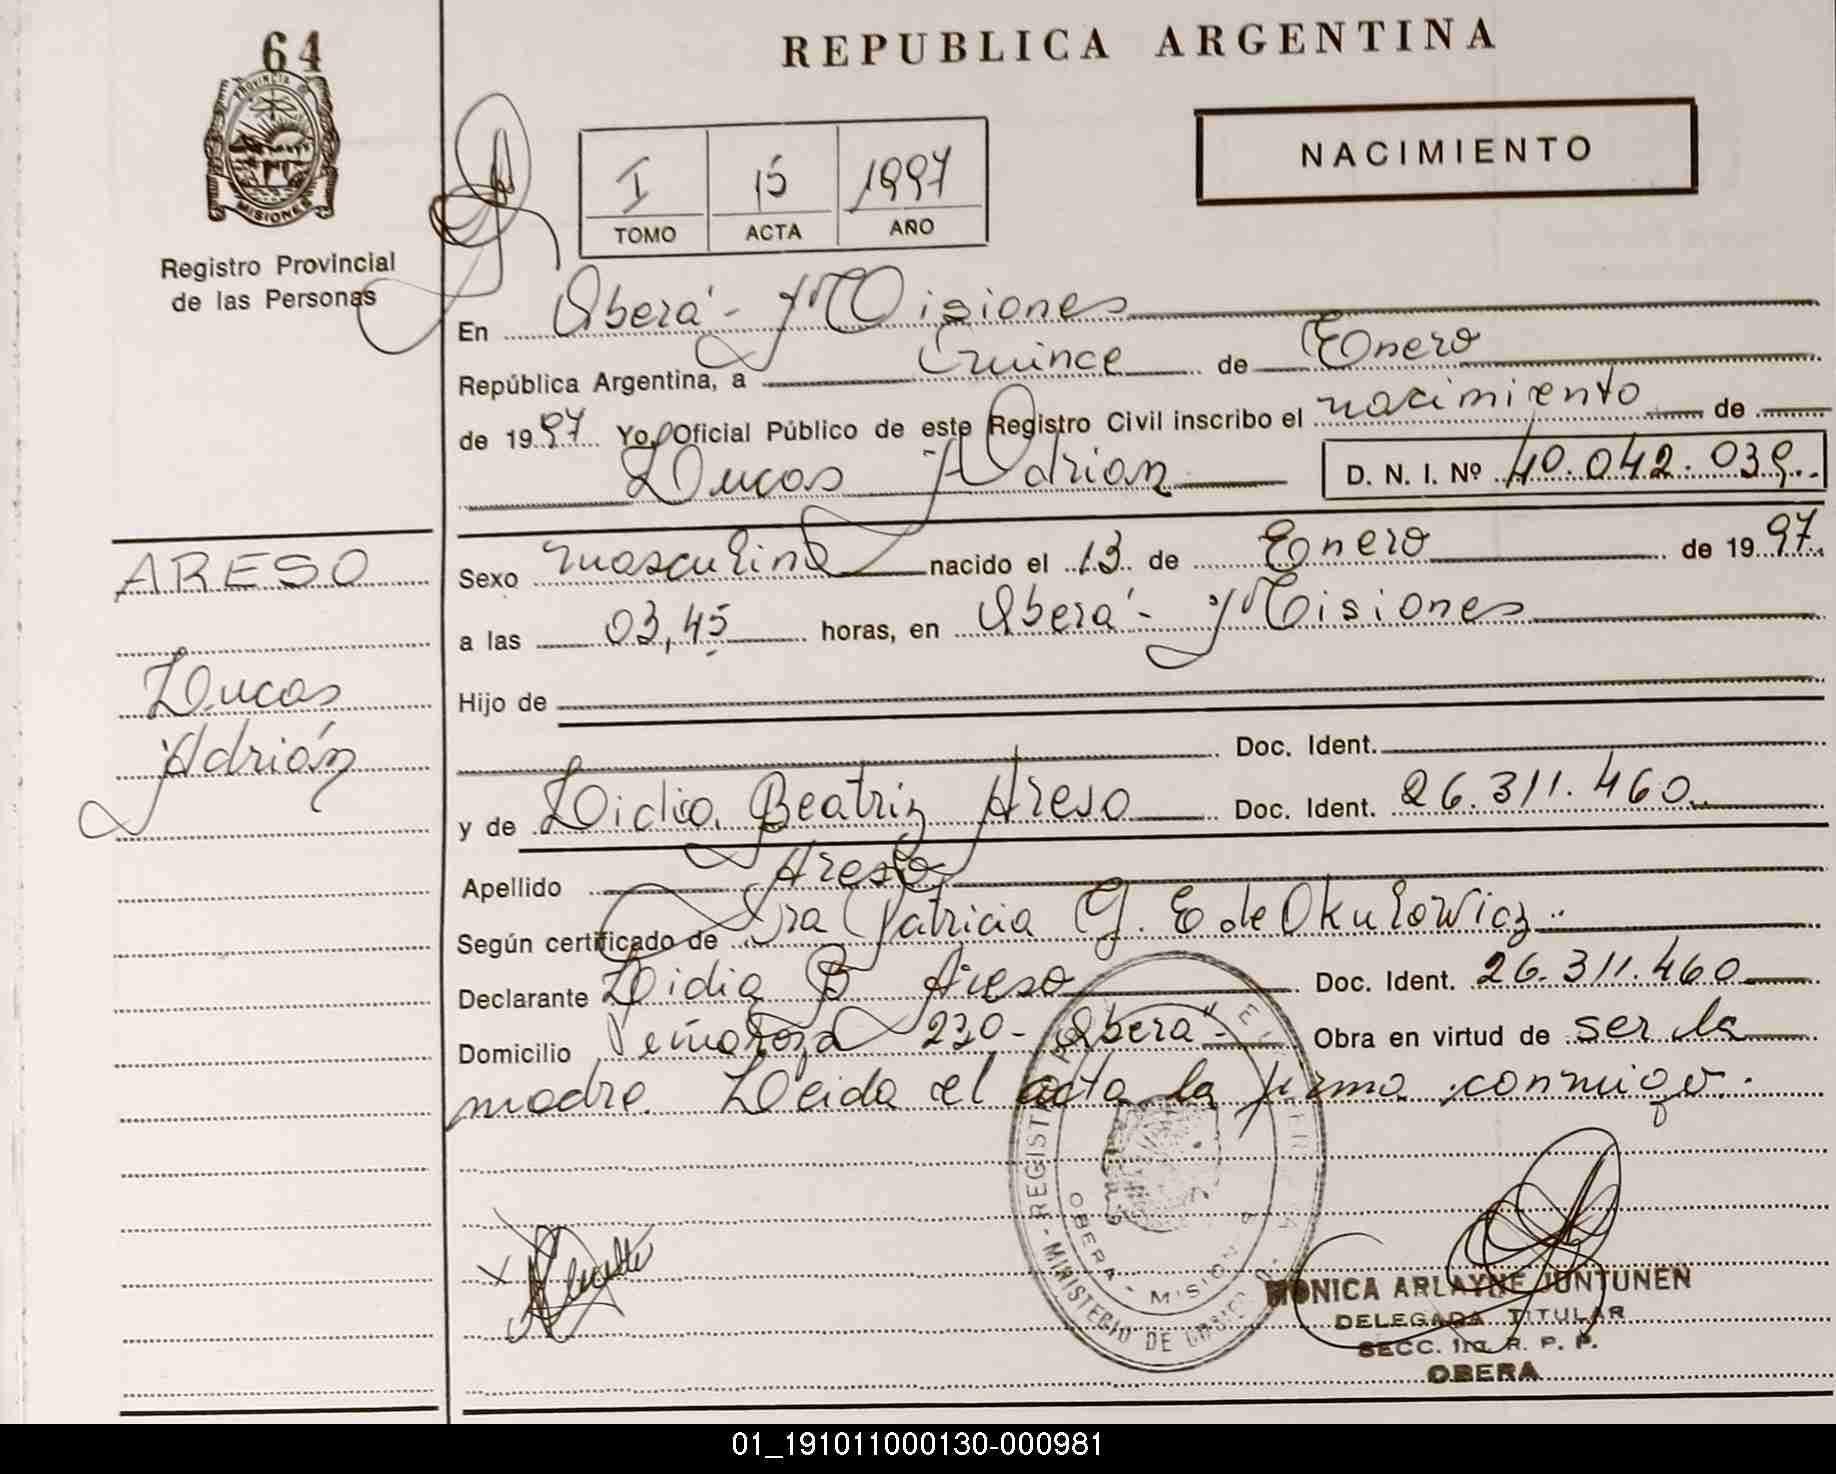 64
REPUBLICA ARGENTINA
PROVINCIA DE
MISIONES
Registro Provincial
de las Personas
I 15 1997
TOMO ACTA AÑO
NACIMIENTO
En Oberá - Misiones
República Argentina, a Quince de Enero
de 1997 Yo, Oficial Público de este Registro Civil inscribo el nacimiento de
Lucas Adrián D. N. I. Nº 40.042.039
ARESO
Lucas
Adrián
Sexo masculino nacido el 13 de Enero de 1997
a las 03,45 horas, en Oberá - Misiones
Hijo de
Doc. Ident.
y de Lidia Beatriz Areso Doc. Ident. 26.311.460
Apellido Areso
Según certificado de Dra Patricia G. E de Okulowicz
Declarante Lidia B Areso Doc. Ident. 26.311.460
Domicilio Peñaloza 230 - Oberá - Obra en virtud de ser la
madre. Leida el acta la firma conmigo.
OBERA - MISIONES
MONICA ARLAYNE JUNTUNEN
DELEGADA TITULAR
SECC. 1ra. R. P. P.
OBERA
01_191011000130-000981